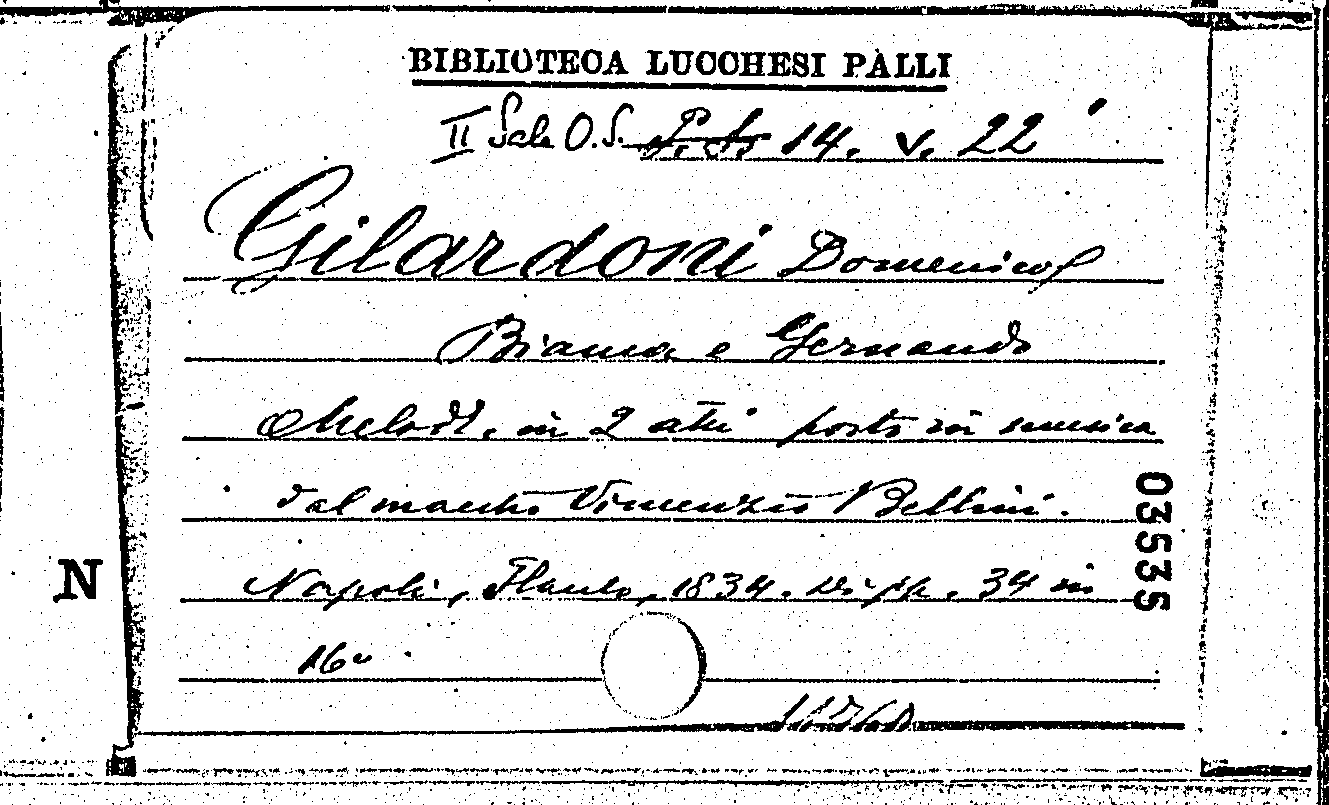 BIBLIOTECA LUCCHESI PALLI
II Sala O.S. P. S. 14. v. 22
Gilardoni Domenico
Bianca e Gernando
Melodr. in 2 atti posto in musica
dal maestro Vincenzo Bellini.
Napoli, Flauto, 1834. di pp. 34 in
16º
03535
N